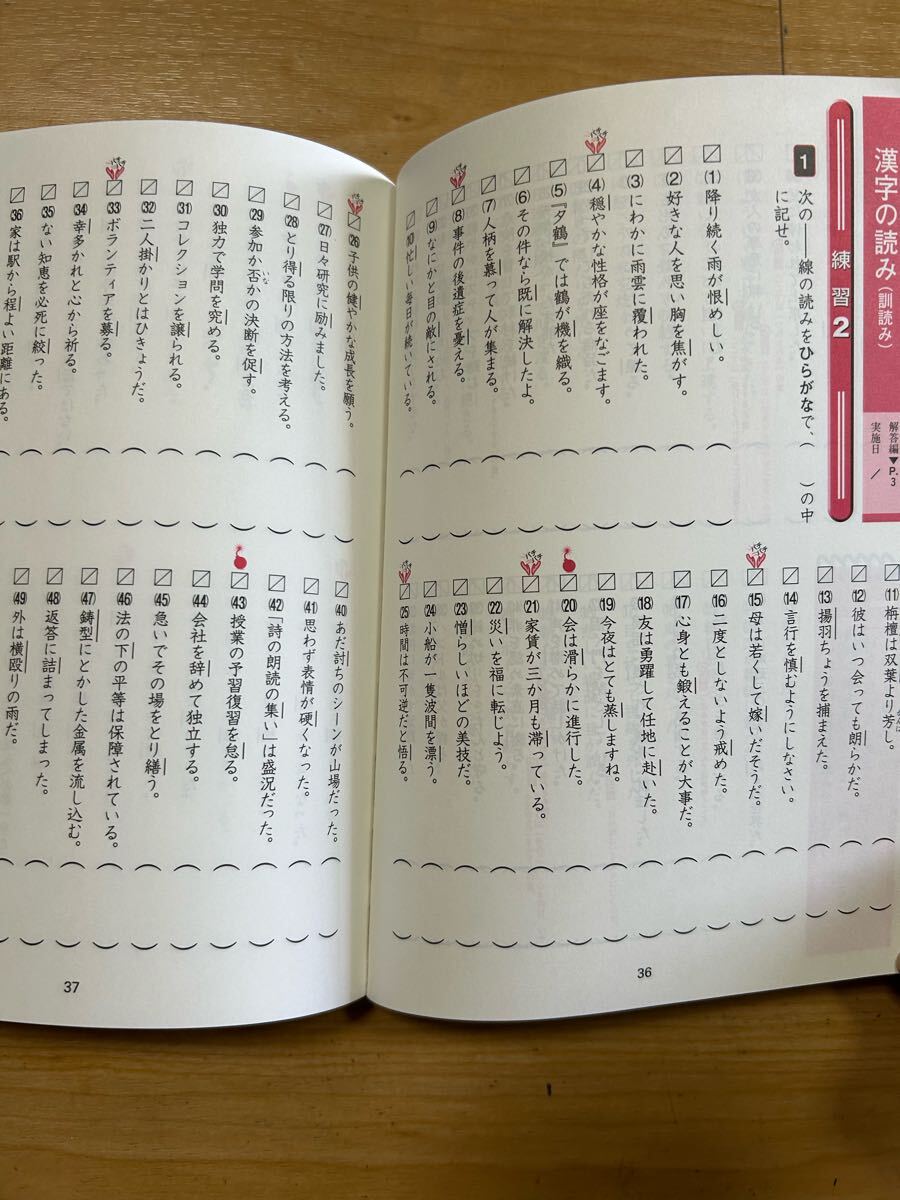 漢字の読み(訓読み)
解答編▼P.3
実施日 /
練習2
1 次の――線の読みをひらがなで、( )の中に記せ。
(1) 降り続く雨が恨めしい。
(2) 好きな人を思い胸を焦がす。
(3) にわかに雨雲に覆われた。
パチパチ
(4) 穏やかな性格が座をなごます。
(5) 『夕鶴』では鶴が機を織る。
(6) その件なら既に解決したよ。
(7) 人柄を慕って人が集まる。
パチパチ
(8) 事件の後遺症を憂える。
(9) なにかと目の敵にされる。
(10) 忙しい毎日が続いている。
(11) 栴檀は双葉より芳し。
(12) 彼はいつ会っても朗らかだ。
(13) 揚羽ちょうを捕まえた。
(14) 言行を慎むようにしなさい。
パチパチ
(15) 母は若くして嫁いだそうだ。
(16) 二度としないよう戒めた。
(17) 心身とも鍛えることが大事だ。
(18) 友は勇躍して任地に赴いた。
(19) 今夜はとても蒸しますね。
(20) 会は滑らかに進行した。
パチパチ
(21) 家賃が三か月も滞っている。
(22) 災いを福に転じよう。
(23) 憎らしいほどの美技だ。
(24) 小船が一隻波間を漂う。
パチパチ
(25) 時間は不可逆だと悟る。
36
パチパチ
(26) 子供の健やかな成長を願う。
(27) 日々研究に励みました。
(28) とり得る限りの方法を考える。
(29) 参加か否かの決断を促す。
いな
(30) 独力で学問を究める。
(31) コレクションを譲られる。
(32) 二人掛かりとはひきょうだ。
パチパチ
(33) ボランティアを募る。
(34) 幸多かれと心から祈る。
(35) ない知恵を必死に絞った。
(36) 家は駅から程よい距離にある。
(40) あだ討ちのシーンが山場だった。
(41) 思わず表情が硬くなった。
(42) 「詩の朗読の集い」は盛況だった。
(43) 授業の予習復習を怠る。
(44) 会社を辞めて独立する。
(45) 急いでその場をとり繕う。
(46) 法の下の平等は保障されている。
(47) 鋳型にとかした金属を流し込む。
(48) 返答に詰まってしまった。
(49) 外は横殴りの雨だ。
37